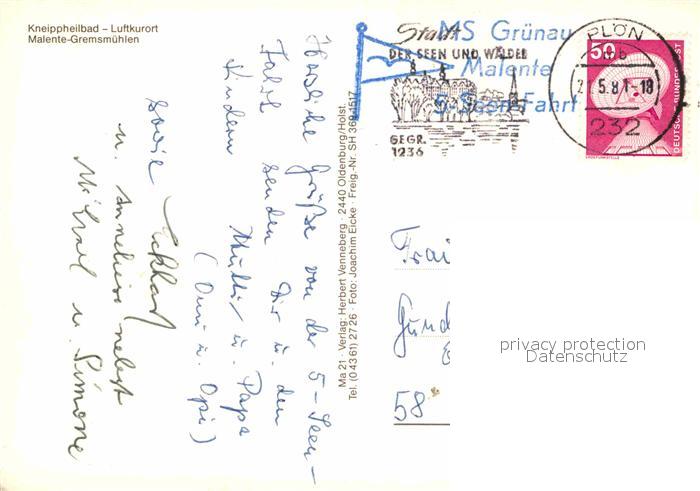 Kneippheilbad – Luftkurort
Malente-Gremsmühlen
Herzliche Grüße von der 5-Seen-
Fahrt senden Dir u. den
Kindern Mutti u. Papa
(Omi u. Opi)
sowie Eckhard
u. Anneliese nebst
Michael u. Simone
Ma 21 · Verlag: Herbert Venneberg · 2440 Oldenburg/Holst.
Tel. (04361) 2726 · Foto: Joachim Eicke · Freig.-Nr. SH 369-1517
Stadt
DER SEEN UND WÄLDER
GEGR.
1236
MS Grünau
Malente
5-Seen-Fahrt
PLÖN
232
50
DEUTSCHE BUNDESPOST
58
privacy protection
Datenschutz